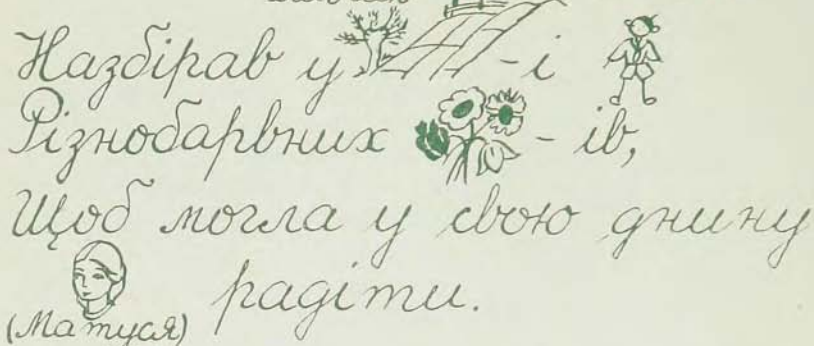 Назбірав у -і
Різнобарвних - ів,
Щоб могла у свою днину
радіти.
(Матуся)